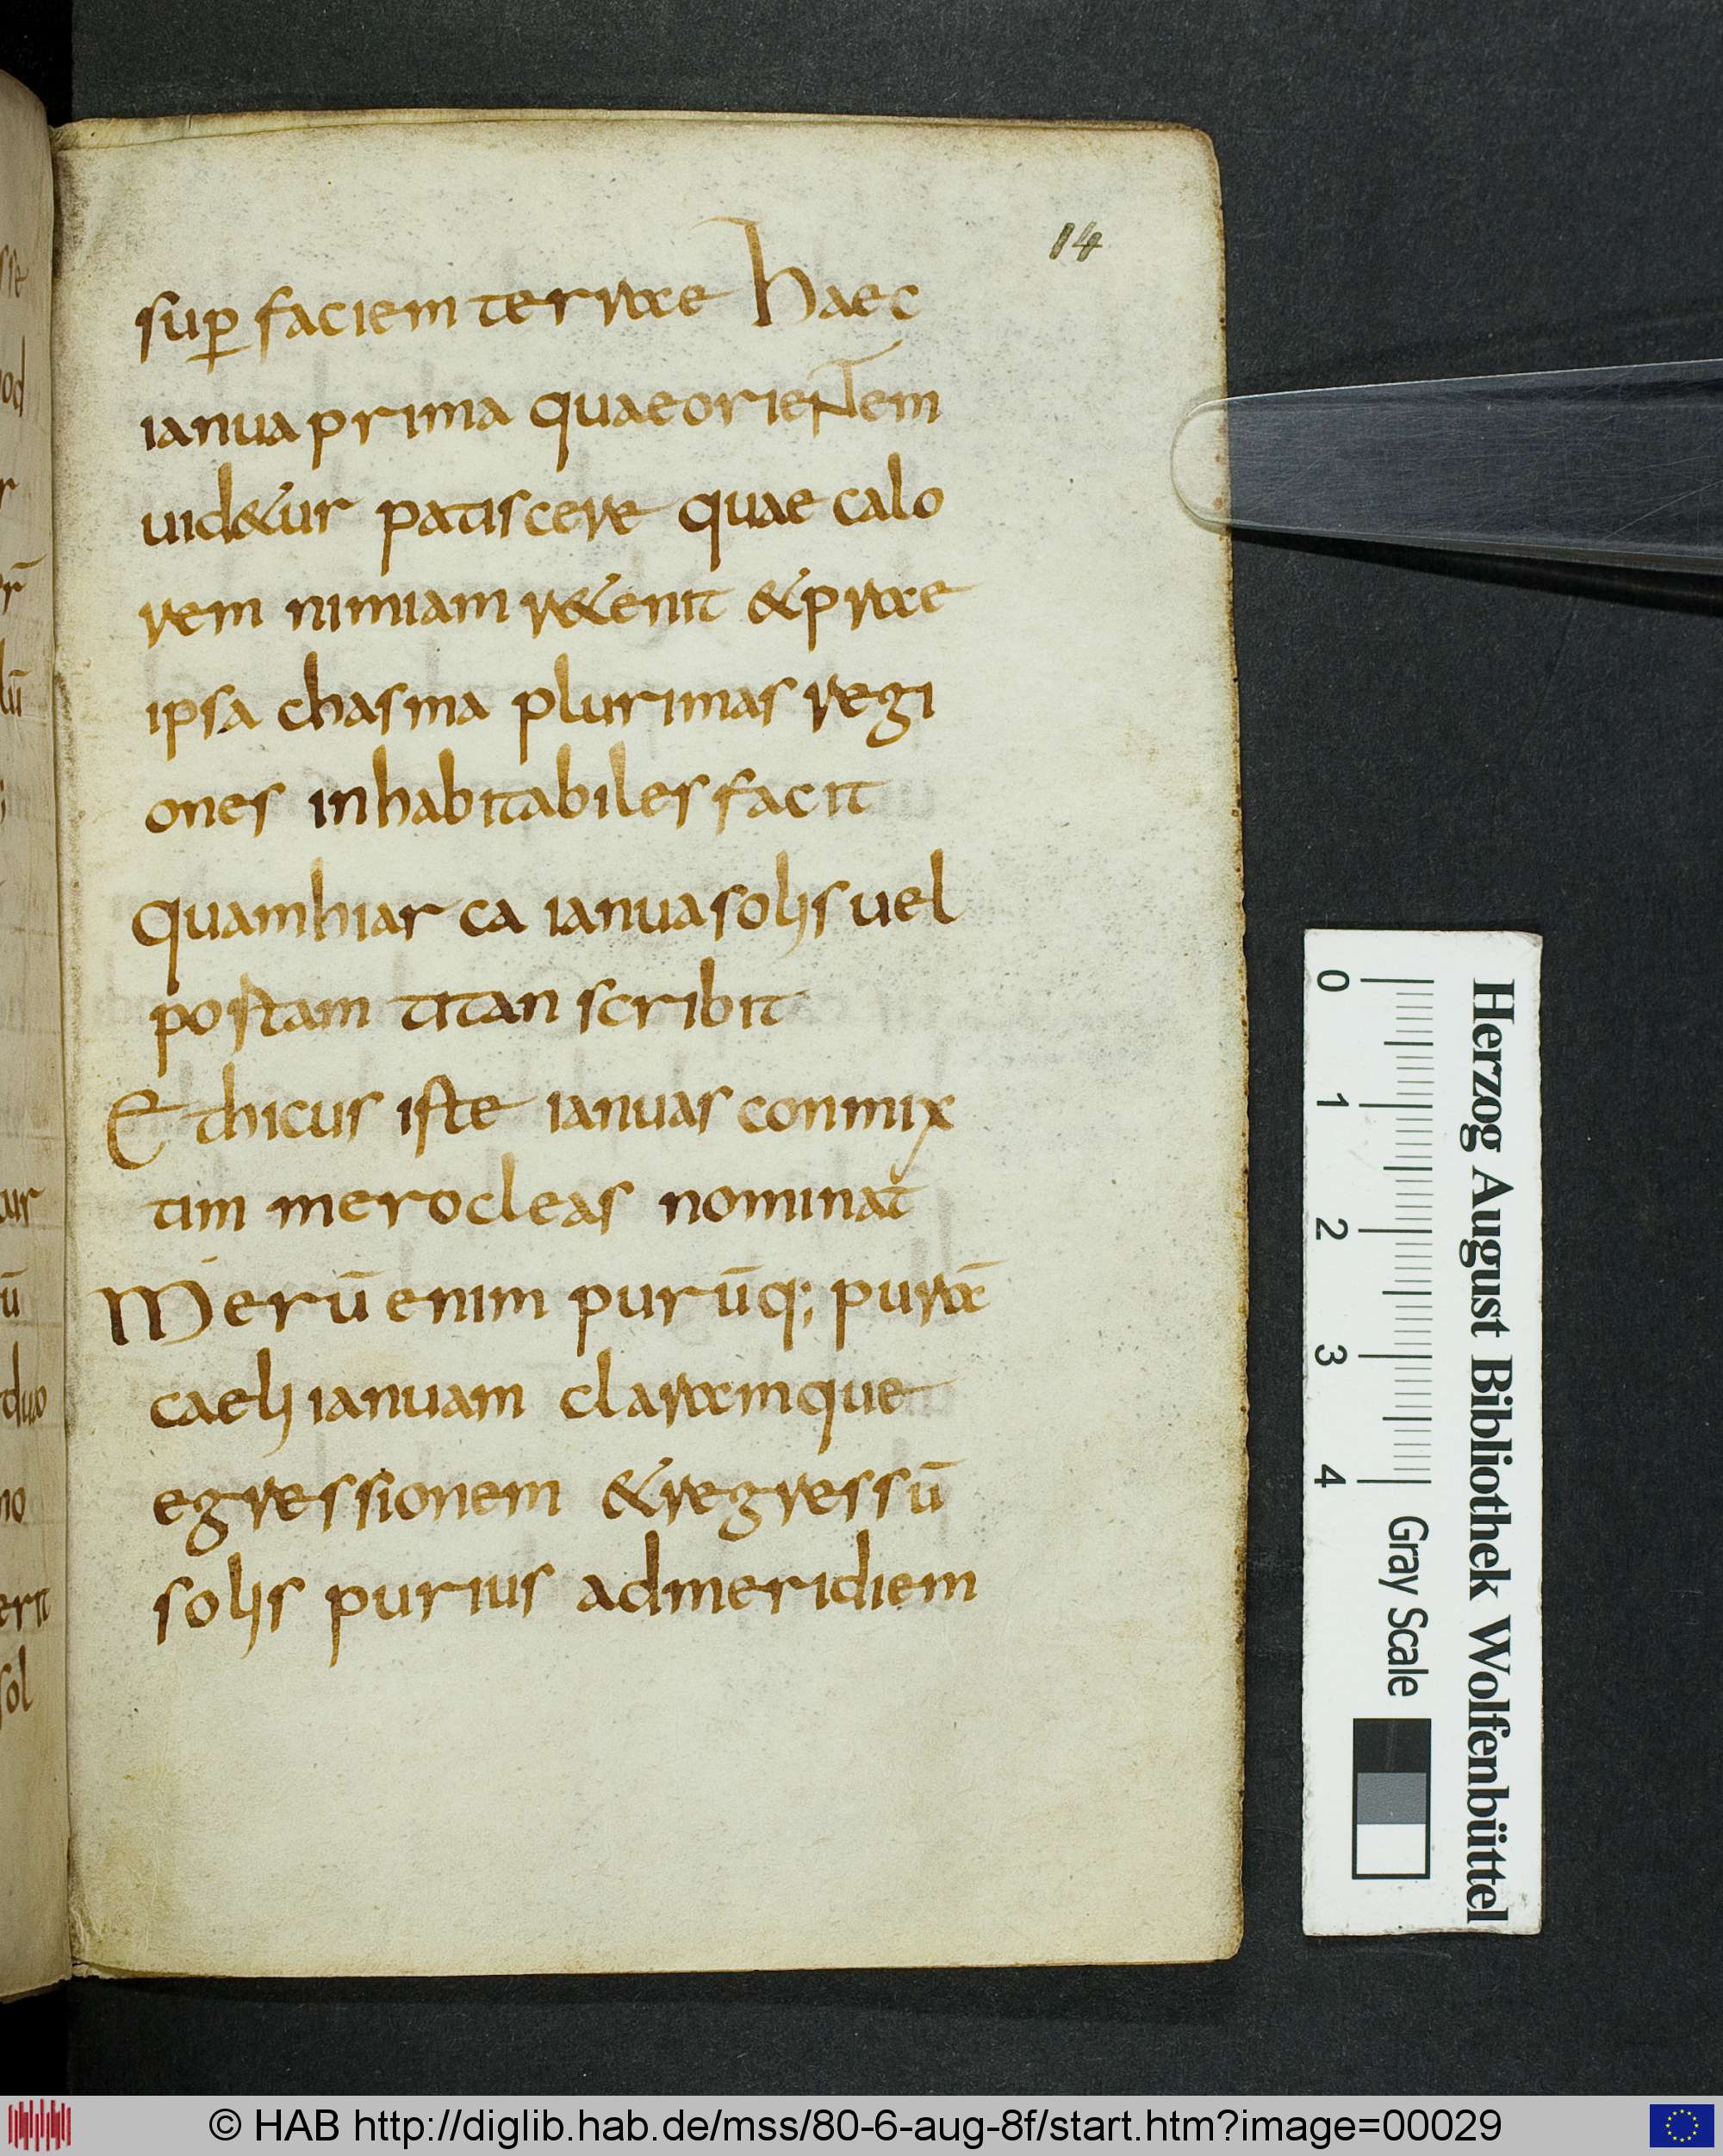 14
sup̱ faciem terrae Haec
ianua prima quae orientem
uid&ur patiscere quae calo
rem nimiam r&enit & prae
ipsa chasma plurimas regi
ones inhabitabiles facit
quam hiar ca ianua solis uel
postam titan scribit
Ethicus iste ianuas conmix
tim merocleas nominat
Merū enim purūq; purā
caeli ianuam claramque
egressionem & regressū
solis purius ad meridiem
Herzog August Bibliothek Wolfenbüttel
0 1 2 3 4 Gray Scale
© HAB http://diglib.hab.de/mss/80-6-aug-8f/start.htm?image=00029